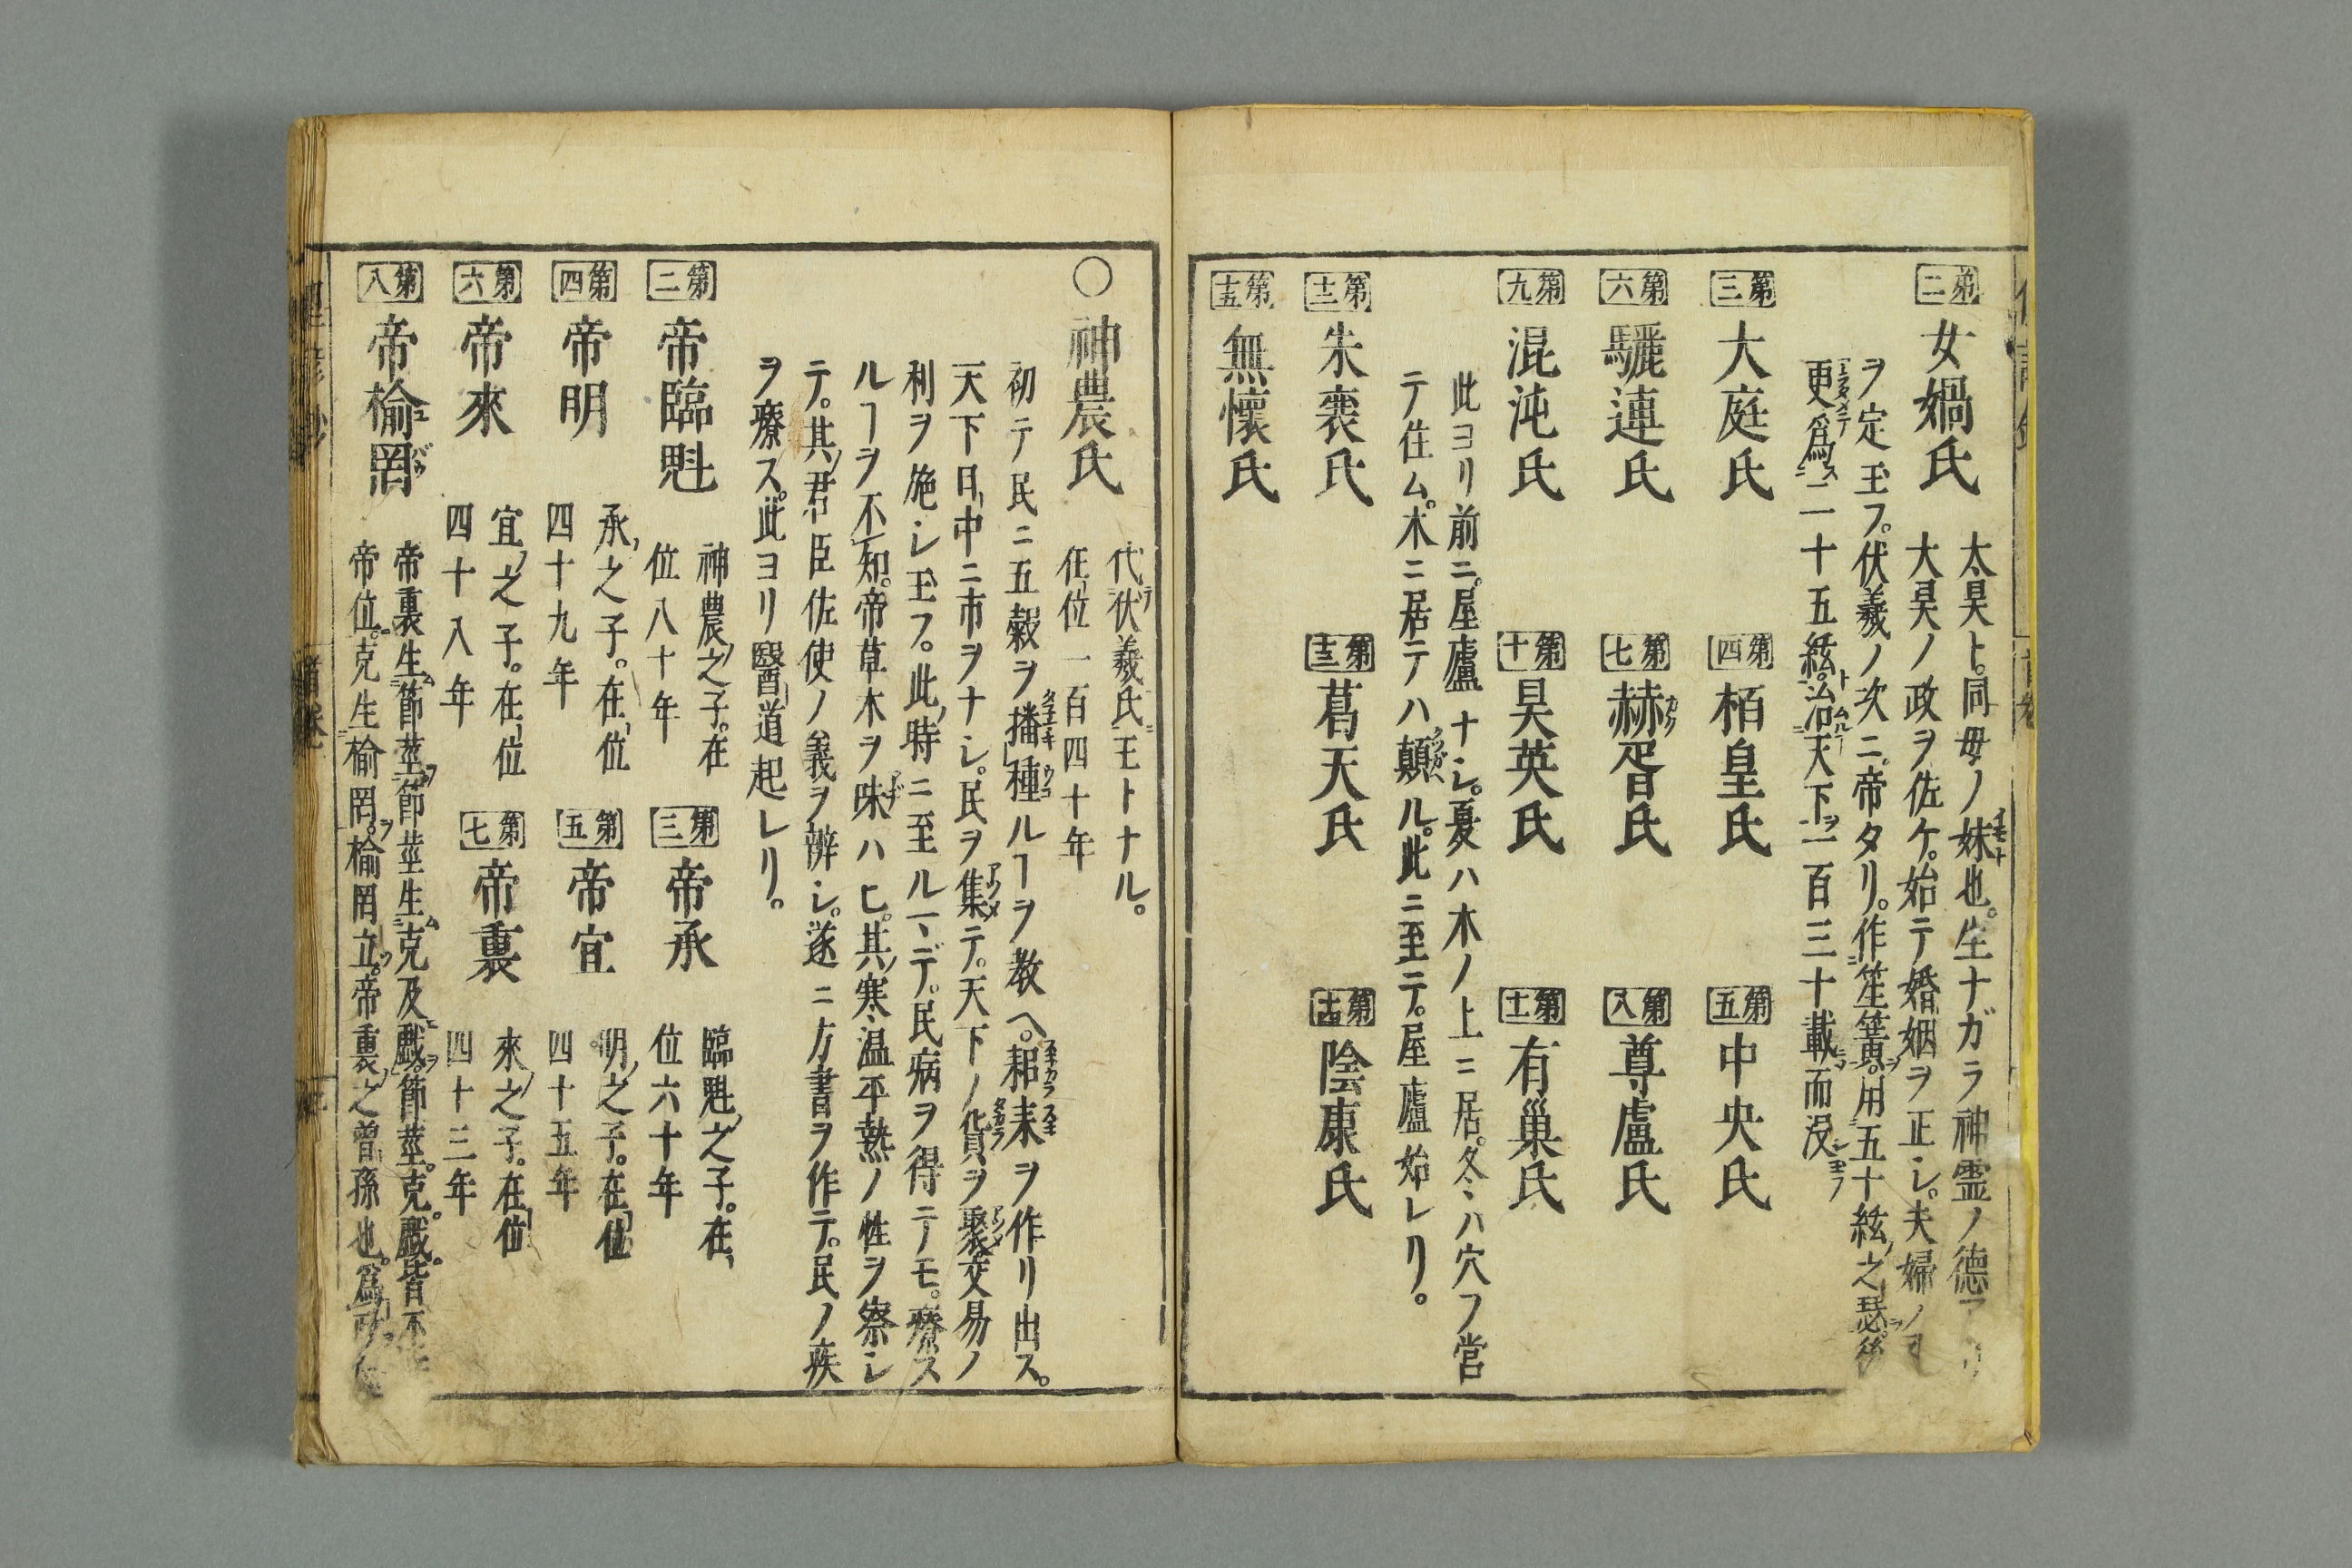 第二 女媧氏
太昊ト。同母ノ妹也。生ナガラ神霊ノ徳
大昊ノ政ヲ佐ケ。始テ婚姻ヲ正シ。夫婦ノ
ヲ定玉フ。伏羲ノ次ニ。帝タリ。作笙簧。用五十絃之瑟。後
更爲二十五絃。治天下一百三十載而没
第三 大庭氏
第四 栢皇氏
第五 中央氏
第六 驪連氏
第七 赫胥氏
第八 尊盧氏
第九 混沌氏
第十 昊英氏
第十一 有巢氏
此ヨリ前ニ。屋廬ナシ。夏ハ木ノ上ニ居。冬ハ穴フ営
テ住ム。木ニ居テハ顛ル。此ニ至テ。屋廬始レリ。
第十二 朱襄氏
第十三 葛天氏
第十四 陰康氏
第十五 無懷氏
○神農氏
代伏羲氏王トナル。
在位一百四十年
初テ民ニ五穀ヲ播種ルヿヲ教ヘ。耜耒ヲ作リ出ス。
天下日中ニ市ヲナシ。民ヲ集テ。天下ノ貨ヲ聚交易ノ
利ヲ施シ玉フ。此時ニ至ルマデ。民病ヲ得テモ。療ス
ルヿヲ不知。帝草木ヲ味ハヒ。其寒温平熱ノ性ヲ察シ
テ。其君臣佐使ノ義ヲ辨シ。遂ニ方書ヲ作テ。民ノ疾
ヲ療ス。此ヨリ醫道起レリ。
第二 帝臨魁
神農之子。在
位八十年
第三 帝承
臨魁之子。在
位六十年
第四 帝明
承之子。在位
四十九年
第五 帝宜
明之子。在位
四十五年
第六 帝來
宜之子。在位
四十八年
第七 帝裏
來之子。在位
四十三年
第八 帝楡罔
帝裏生節莖節莖生克及戲。節莖。克。戲。皆不
帝位。克生楡罔。楡罔立。帝裏之曽孫也。爲政
首卷